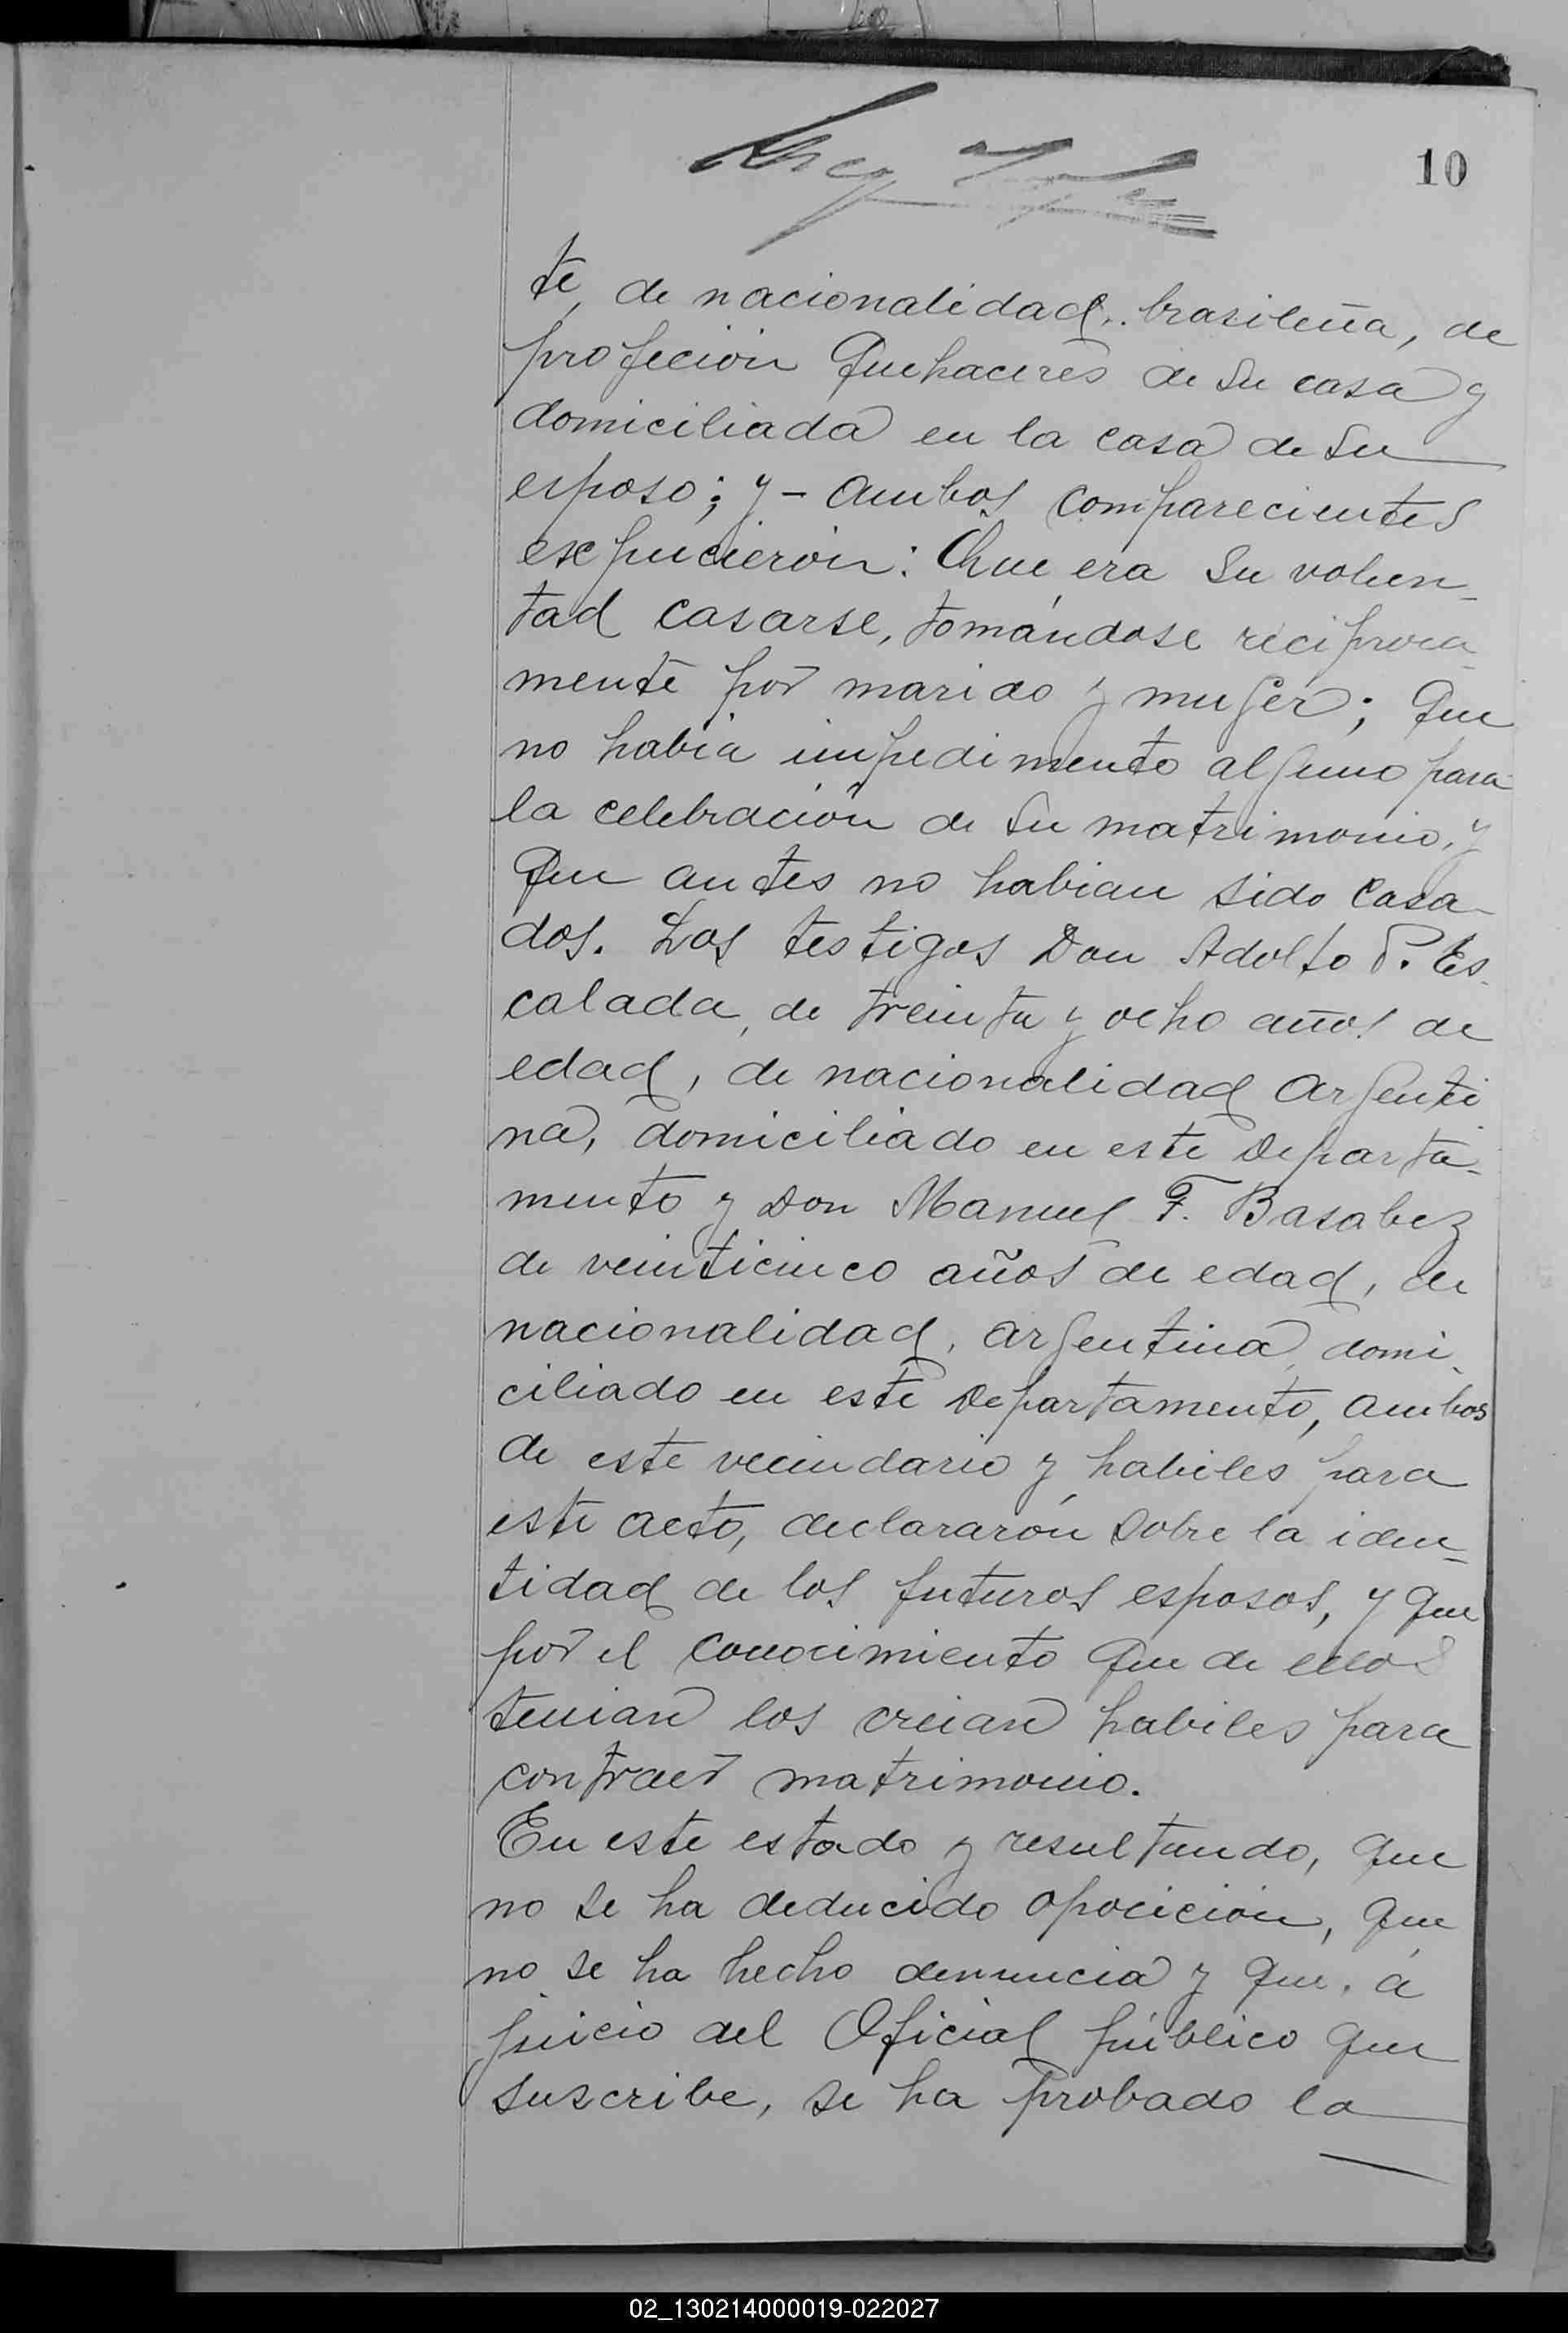 10
te, de nacionalidad brasileña, de
profeción Quehaceres de su casa y
domiciliada en la casa de su
esposo; y - ambos comparecientes
expucierón: Que era su volun-
tad casarse, tomándose reciproca-
mente por marido y muger; que
no había impedimento alguno para
la celebración de su matrimonio, y
que antes no habian sido casa-
dos. Los testigos Don Adolfo P. Es-
calada, de treinta y ocho años de
edad, de nacionalidad argenti
na, domiciliado en este Departa-
mento y Don Manuel F. Basabez
de veinticinco años de edad, de
nacionalidad, argentina, domi-
ciliado en este Departamento, ambos
de este vecindario y habiles para
este acto, declararón sobre la iden-
tidad de los futuros esposos, y que
por el conocimiento que de ellos
tenian los creian habiles para
contraer matrimonio.
En este estado y resultando, que
no se ha deducido opocición, que
no se ha hecho denuncia y que, á
juicio del Oficial público que
suscribe, se ha probado la
02_130214000019-022027